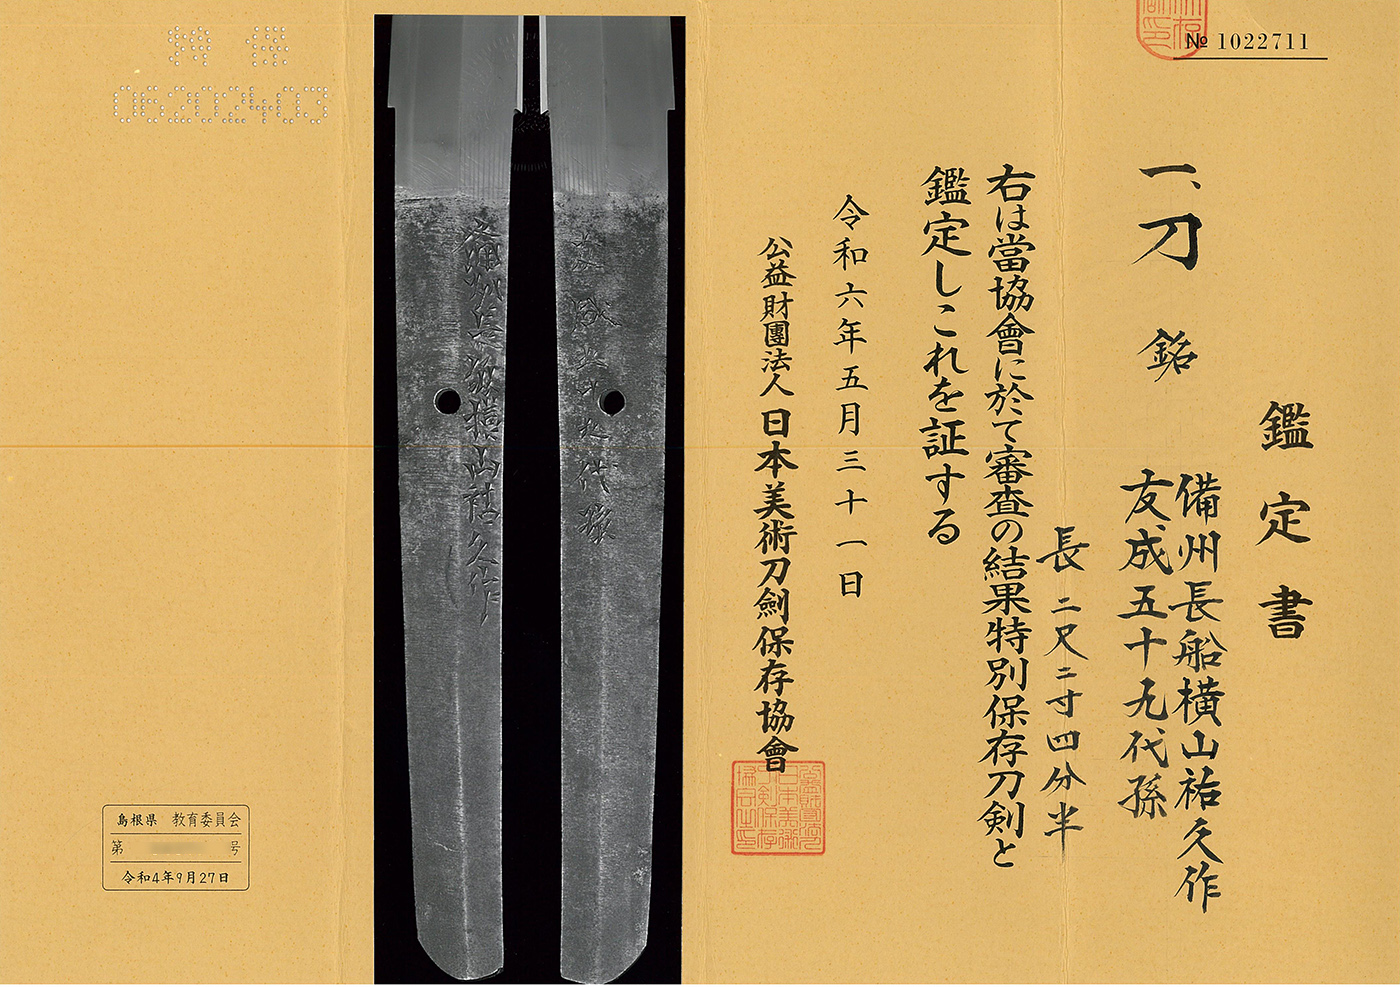 № 1022711
鑑定書
一、刀 銘
備州長船横山祐久作
友成五十九代孫
長 二尺二寸四分半
右は當協會に於て審査の結果特別保存刀剣と
鑑定しこれを証する
令和六年五月三十一日
公益財團法人 日本美術刀劍保存協會
備州長船横山祐久作
友成五十九代孫
06202403
島根県 教育委員会
第 号
令和4年9月27日